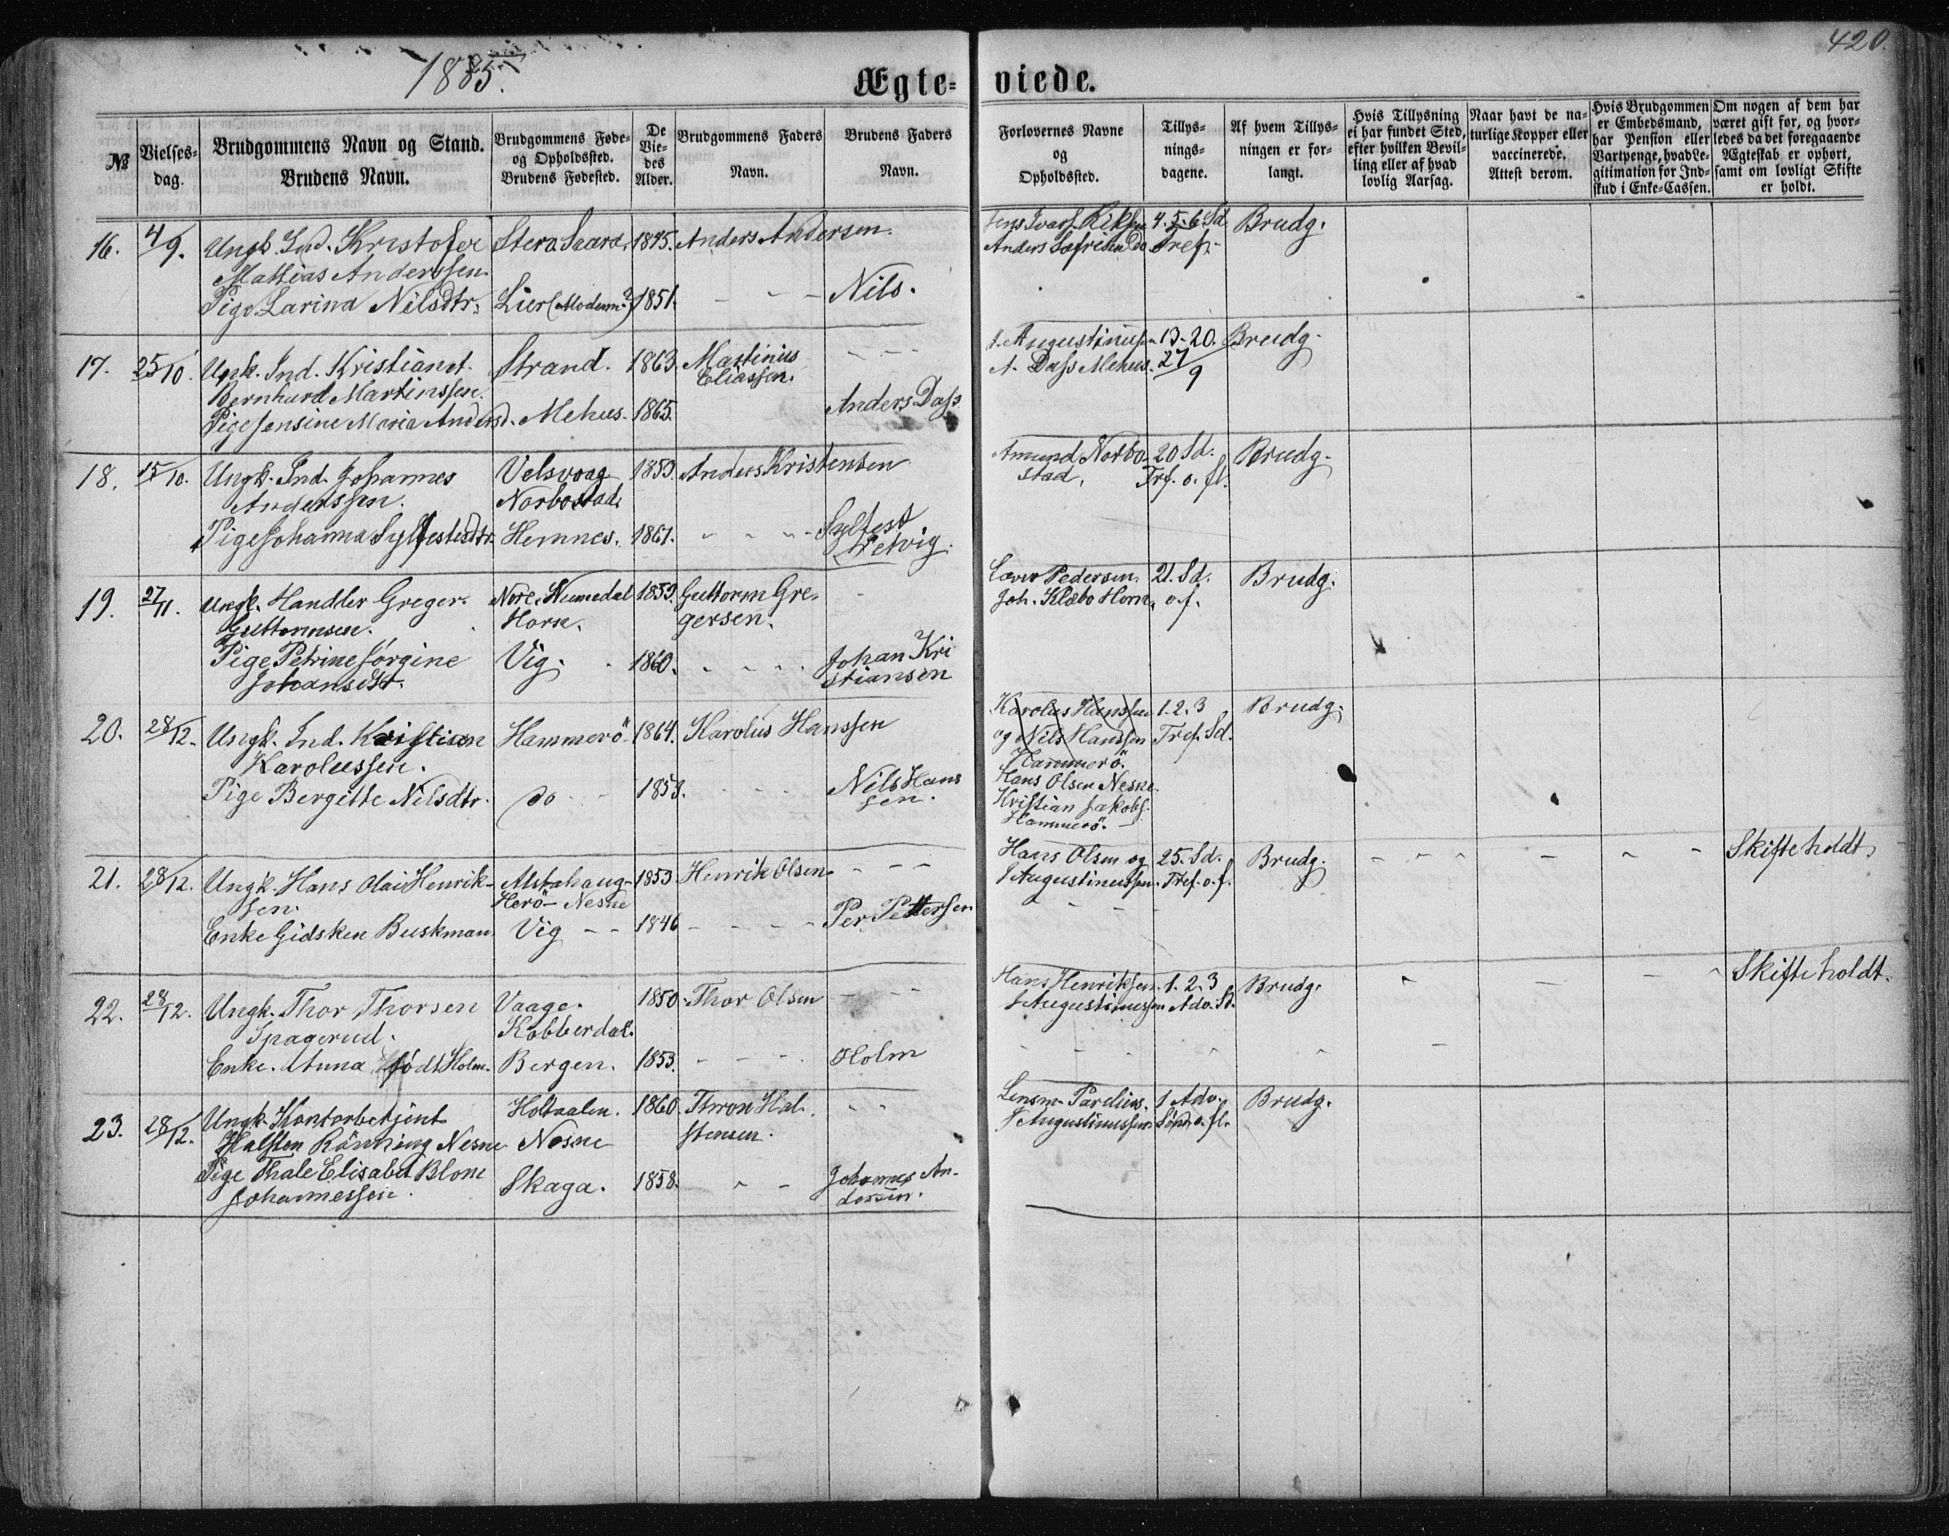 1885.
420.
Ægte=
viede.
№
Vielses-
dag.
Brudgommens Navn og Stand.
Brudens Navn.
Brudgommens Føde-
og Opholdssted.
Brudens Fødested.
De
Vie-
des
Alder.
Brudgommens Faders
Navn.
Brudens Faders
Navn.
Forlovernes Navne
og
Opholdssted.
Tillys-
nings-
dagene.
Af hvem Tillys-
ningen er for-
langt.
Hvis Tillysning
ei har fundet Sted,
efter hvilken Bevil-
ling eller af hvad
lovlig Aarsag.
Naar havt de na-
turlige Kopper eller
vaccinerede.
Attest derom.
Hvis Brudgommen
er Embedsmand,
har Pension eller
Vartpenge, hvad Le-
gitimation for Ind-
skud i Enke-Cassen.
Om nogen af dem har
været gift før, og hvor-
ledes da det foregaaende
Ægteskab er ophørt,
samt om lovligt Skifte
er holdt.
16.
4/9.
Ungk. Ind. Kristofer
Mattias Anderssen.
Pige Larina Nilsdtr.
Lier (Modum?)
1845.
1851.
Anders Andersen.
Nils.
4. 5. 6 Sd
Tref.
Brudg.
17.
25/10.
Ungk. Ind. Kristian
Bernhard Martinssen.
Pige Jensine Maria Andersd.
Strand.
Mehus.
1863.
1865.
Martinius
Eliassen.
Anders Dass
Augustinusen
A. Dass Mehus.
13. 20.
27/9
Brudg.
18.
15/10.
Ungk. Ind. Johannes
Anderssen.
Pige Johanna Sylfestesdtr.
Velsvaag
Norbostad.
Hemnes.
1853.
1861.
Anders Kristensen
Sylfest
Amund Norbo-
stad.
20 Sd.
Tref. o. fl.
Brudg.
19.
27/11.
Ungk. Handler Greger
Guttormsen.
Pige Petrine Jørgine
Johansdtr.
Nore. Numedal
Horn.
Vig.
1859.
1860.
Guttorm Gre-
gersen.
Johan Kri
stiansen
Pedersen
Joh. Klæbo Horn.
21. Sd.
o. f.
Brudg.
20.
28/12.
Ungk. Ind. Kristian
Karolussen.
Pige Bergitte Nilsdtr.
Hammerö
do
1864.
1858.
Karolus Hanssen
Nils Hans
sen.
Karolus Hanssen
og Nils Hanssen
Hammerö.
Hans Olsen Nesne.
Kristian Jakobs.
Hammerö.
1. 2. 3
Tref. Sd.
Brudg.
21.
28/12.
Ungk. Hans Olai Henrik-
sen.
Enke Gidsken Buskman
Alstahaug-
Herö - Nesne
Vig
1853.
1846
Henrik Olsen
Per Pettersen
Hans Olsen og
J Augustinussen.
25. Sd.
Tref. o. f.
Brudg.
Skifte holdt.
22.
28/12.
Ungk. Thor Thorsen
Spagerud.
Enke. Anna født Holm.
Vaage.
Kobberdal.
Bergen.
1850.
1853.
Thor Olsen
Holm
Hans Henriksen.
J Augustinussen
1. 2. 3
Adv. Sd.
Brudg.
Skifte holdt.
23.
28/12.
Ungk. Kontorbetjent
Halsten Rönning Nesne
Pige Thale Elisabet Blom
Johannessen.
Holtaalen.
Nesne
Skaga.
1860.
1858.
Thron Hal-
stensen.
Johannes An-
dersen.
Lensm. Parelius.
J Augustinussen
1 Adv.
Sönd. o. fl.
Brudg.